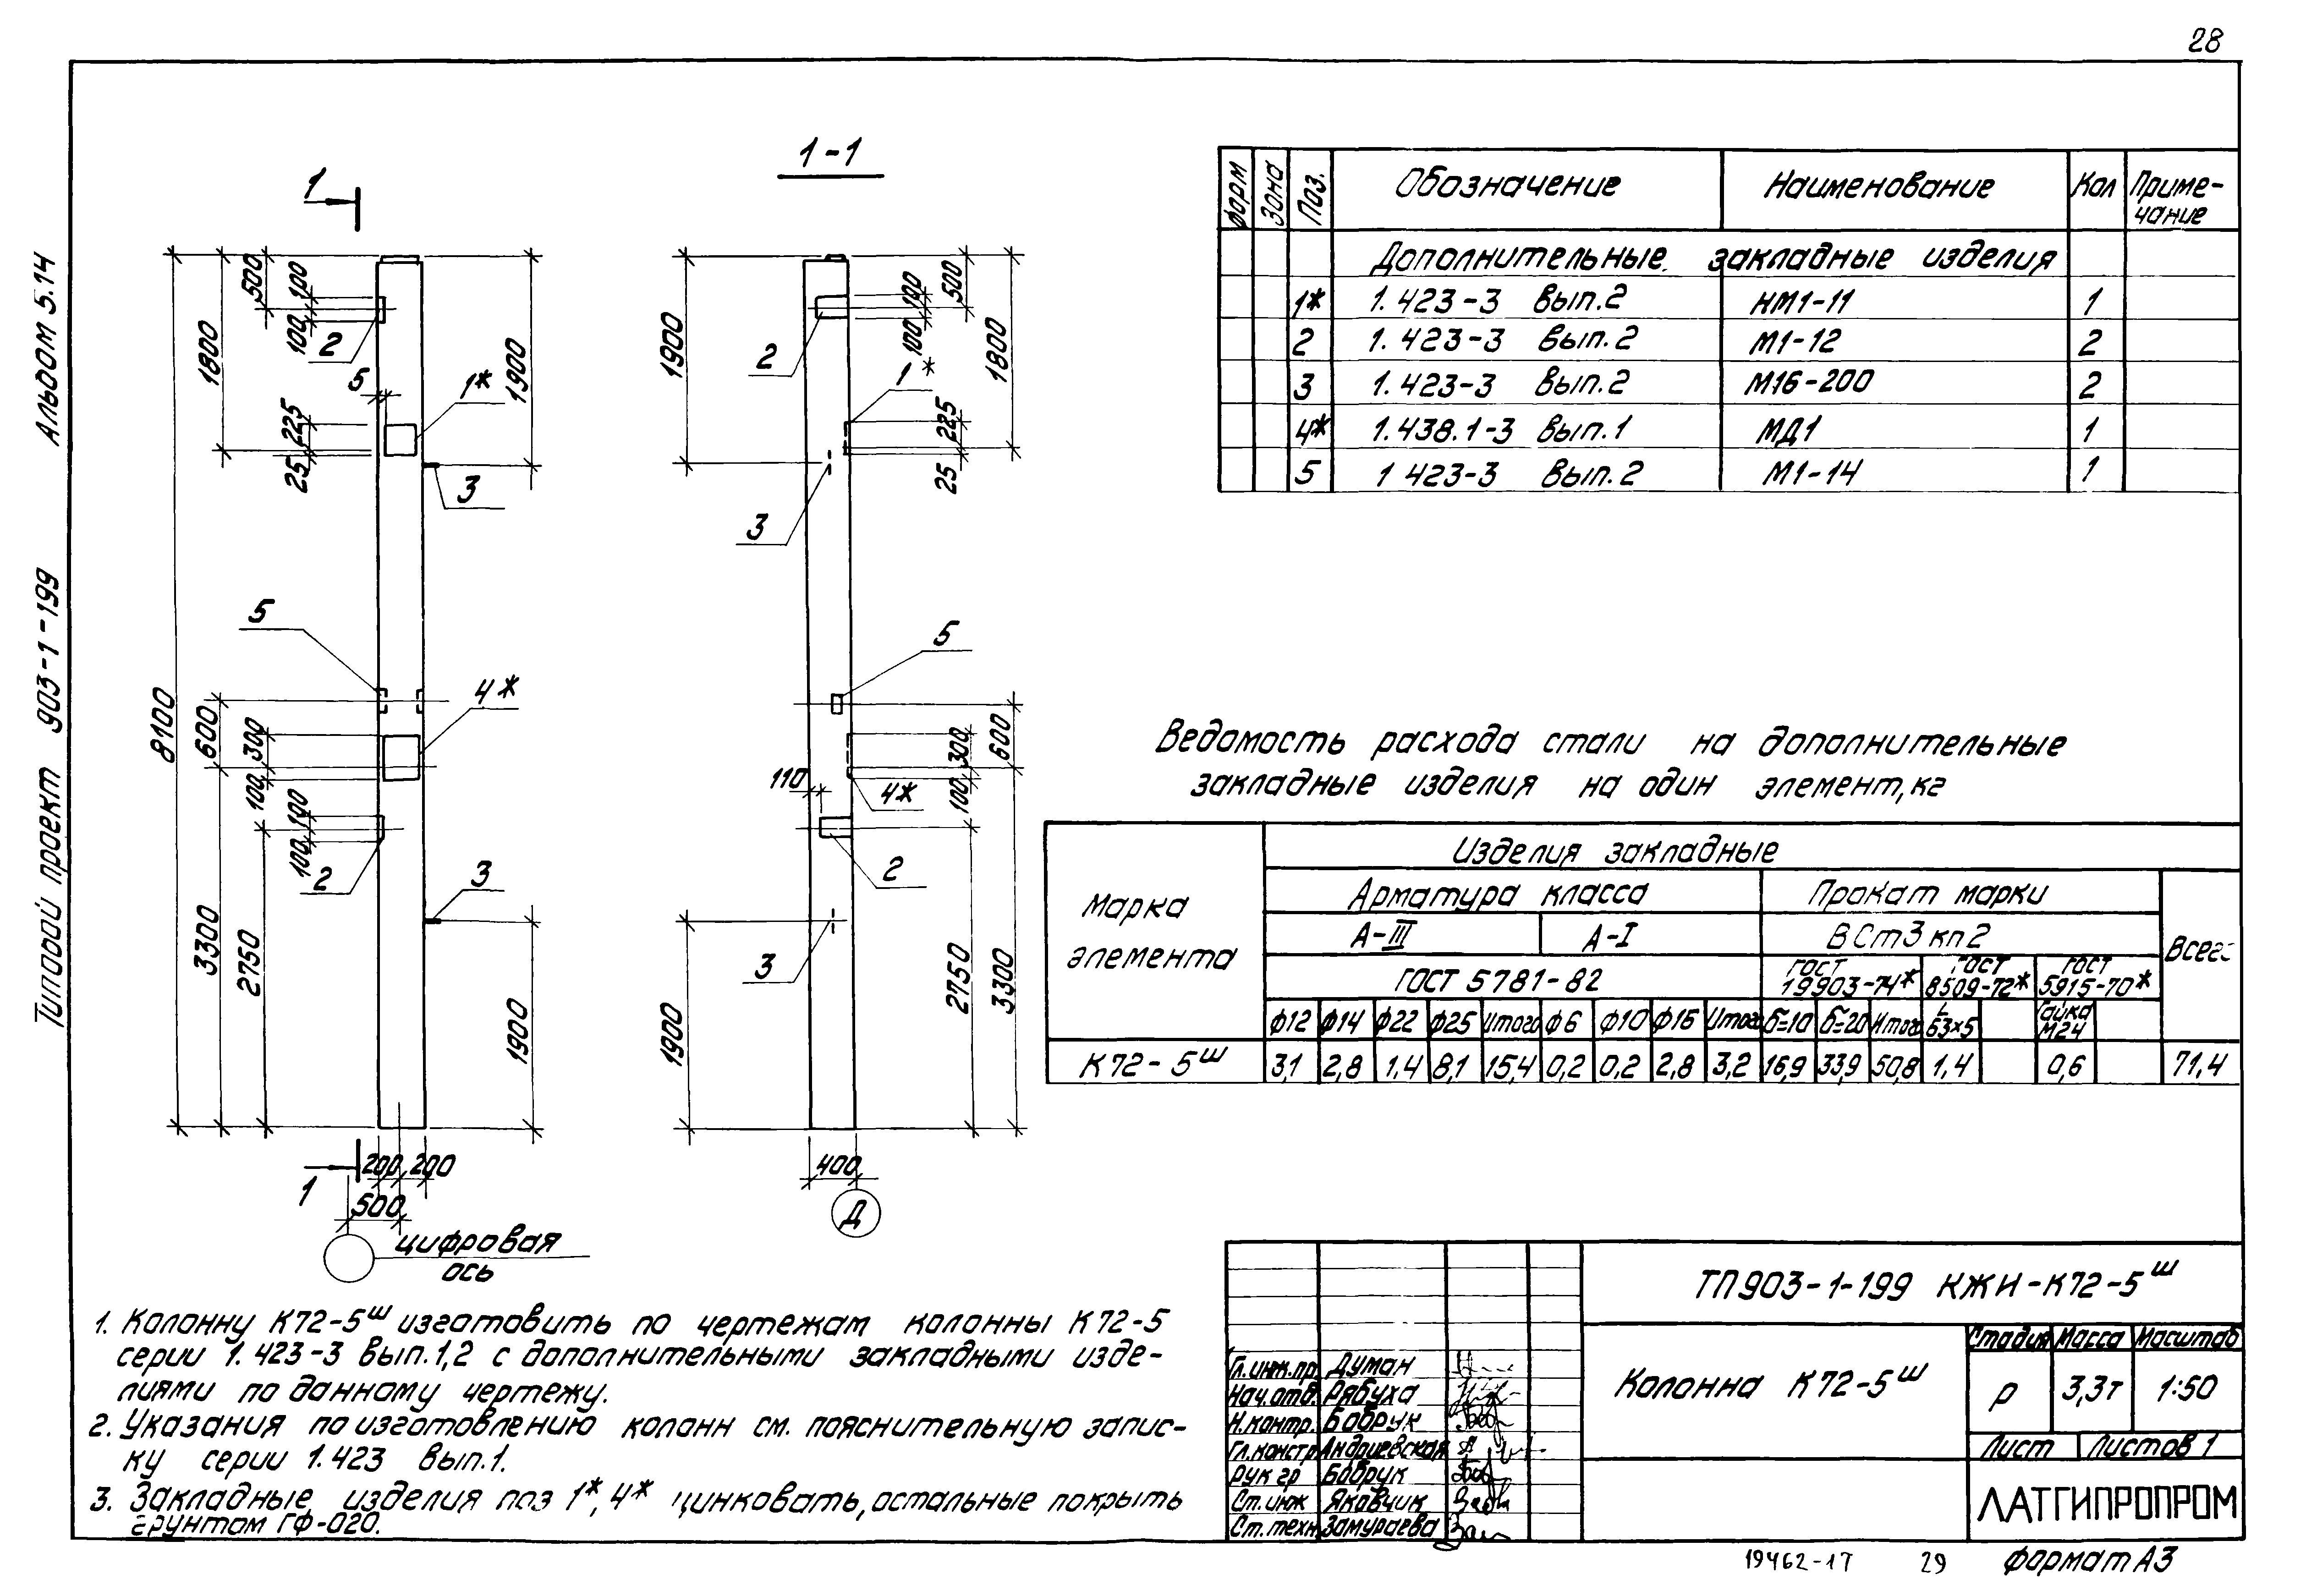 28
Альбом 5.14
Типовой проект 903-1-199
1
1-1
8100
1800
500
100
100
2
5
1*
225
25
1900
3
5
4*
600
300
100
100
100
2
3
3300
2750
1900
1
200 200
500
цифровая
ось
1900
2
100
100
500
1800
1*
225
25
3
5
600
300
100
110
4*
2
3
1900
2750
3300
400
Д
Форм Зона Поз. Обозначение Наименование Кол Приме-
чание
Дополнительные закладные изделия
1* 1.423-3 Вып.2 НМ1-11 1
2 1.423-3 Вып.2 М1-12 2
3 1.423-3 Вып.2 М16-200 2
4* 1.438.1-3 Вып.1 МД1 1
5 1 423-3 Вып.2 М1-14 1
Ведомость расхода стали на дополнительные
закладные изделия на один элемент, кг
Марка
элемента
Изделия закладные
Арматура класса Прокат марки
А-III А-I ВСт3кп2 Всего
ГОСТ 5781-82 ГОСТ
19903-74* ГОСТ
8509-72* ГОСТ
5915-70*
ф12 ф14 ф22 ф25 Итого ф6 ф10 ф16 Итого б=10 б=20 Итого L
63×5 Гайка
М24
К72-5ш 3,1 2,8 1,4 8,1 15,4 0,2 0,2 2,8 3,2 16,9 33,9 50,8 1,4 0,6 71,4
1. Колонну К72-5ш изготовить по чертежам колонны К72-5
серии 1.423-3 вып.1,2 с дополнительными закладными изде-
лиями по данному чертежу.
2. Указания по изготовлению колонн см. пояснительную запис-
ку серии 1.423 вып.1.
3. Закладные изделия поз 1*, 4* цинковать, остальные покрыть
грунтом ГФ-020.
ТП903-1-199 КЖИ-К72-5ш
Колонна К72-5ш
Стадия Масса Масштаб
Р 3,3т 1:50
Лист Листов 1
ЛАТГИПРОПРОМ
Гл.инж.пр. Думан
Нач.отд. Рябуха
Н.контр. Бобрук
Гл.констр Андриевская
Рук гр Бобрук
Ст.инж Яковчик
Ст.техн Замураева
19462-17 29 Формат А3